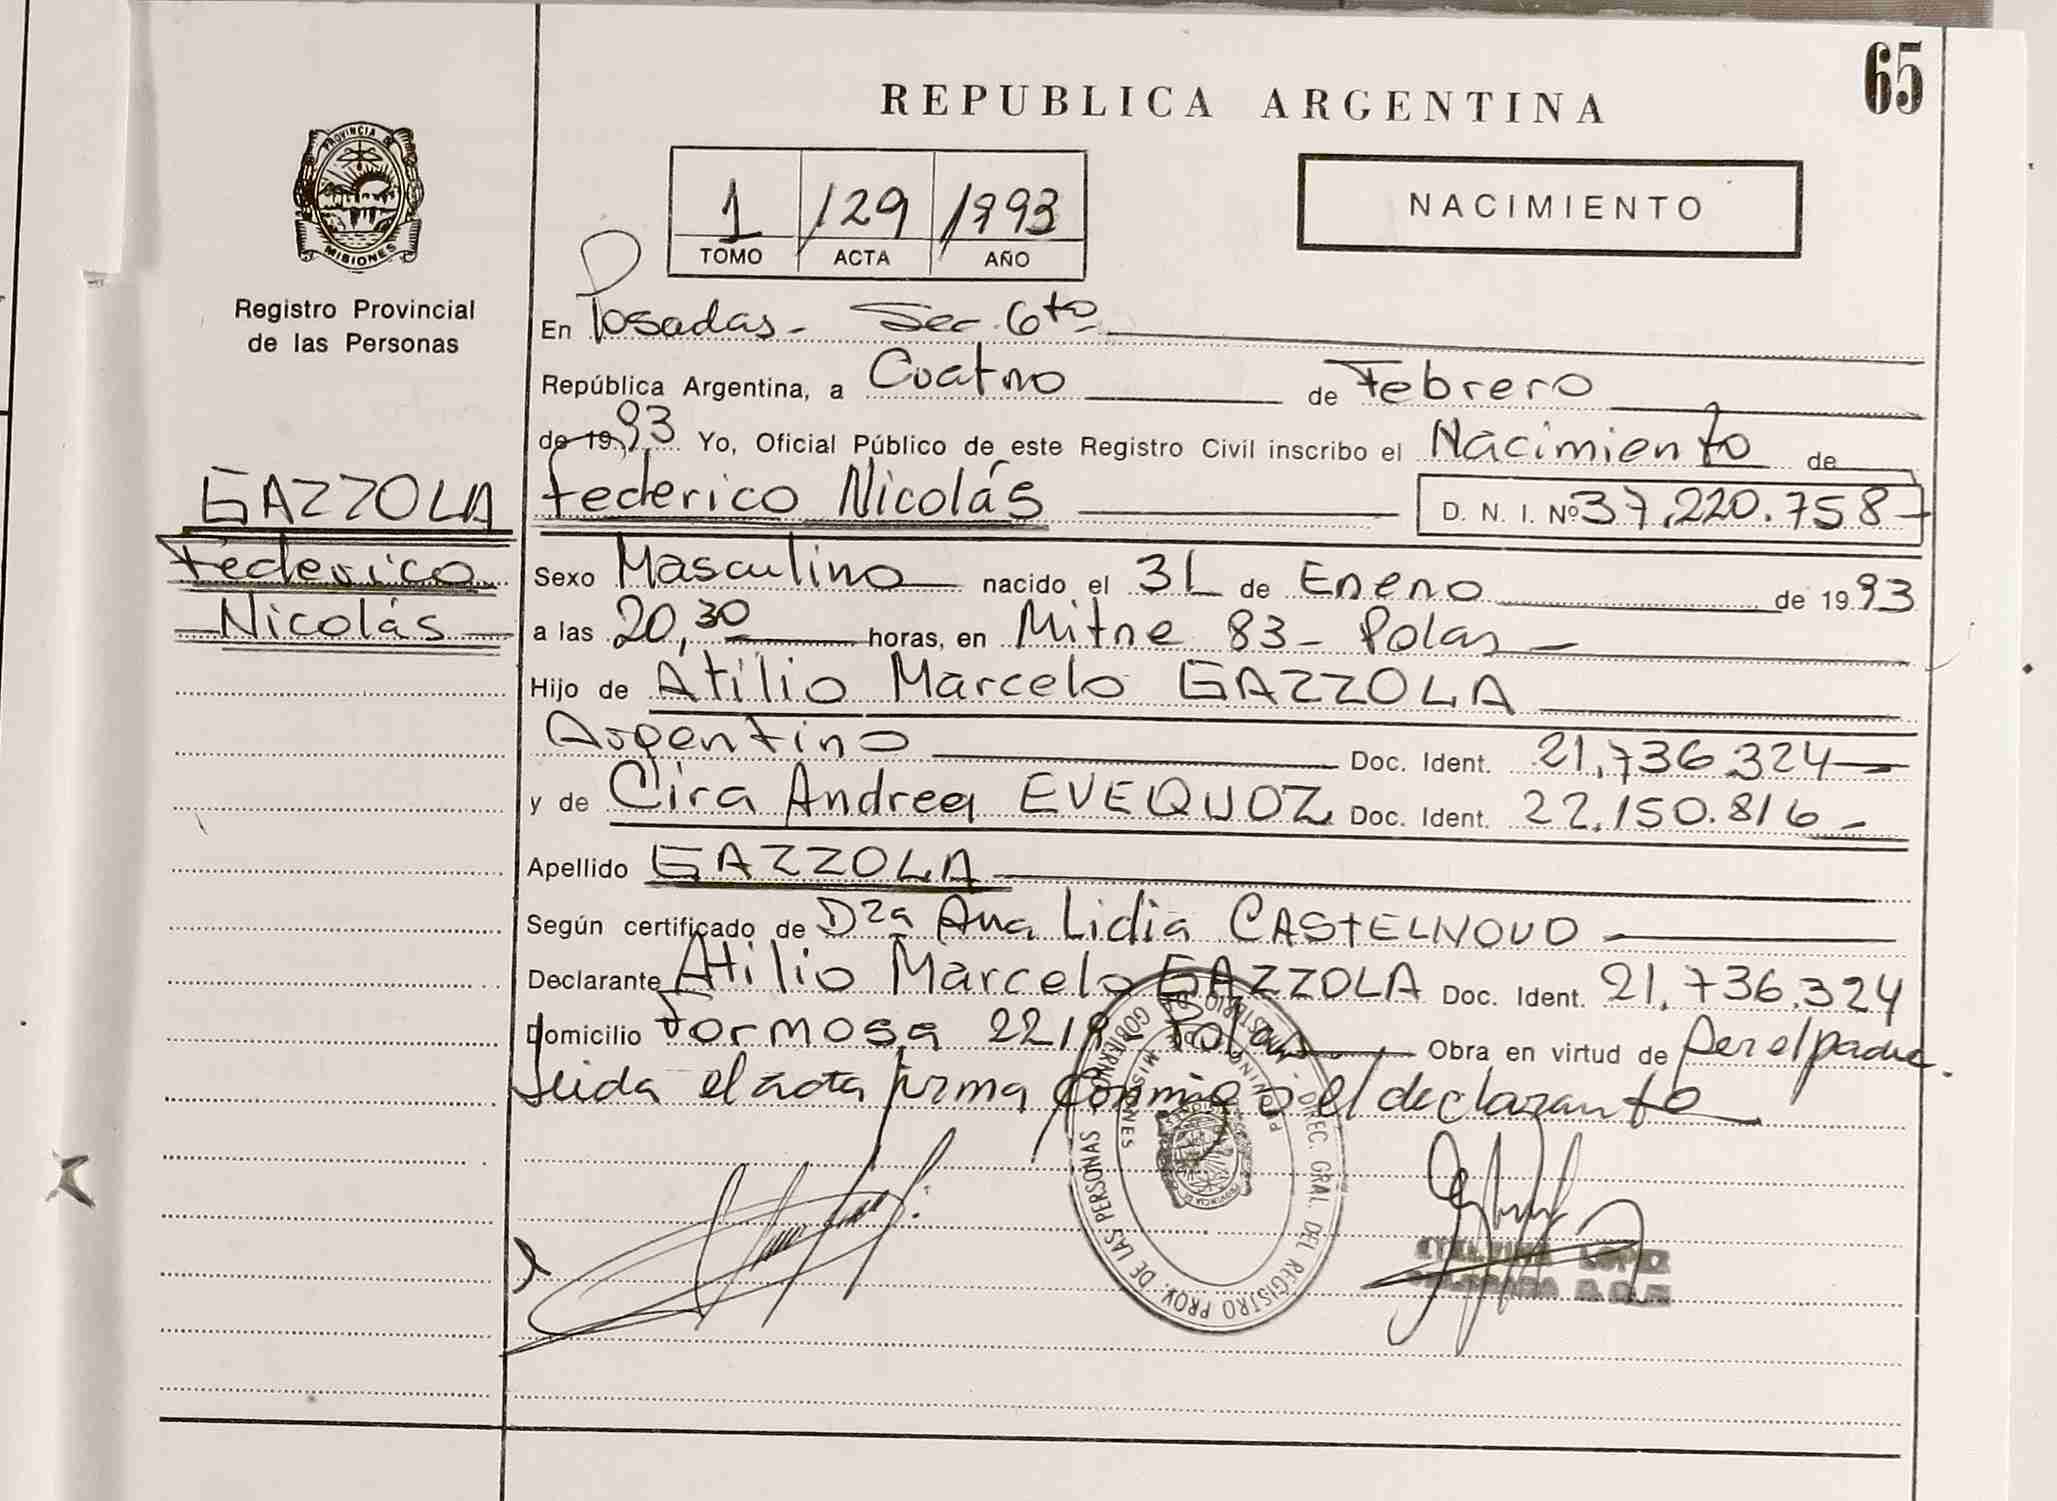 65
REPUBLICA ARGENTINA
PROVINCIA DE
MISIONES
Registro Provincial
de las Personas
1 129 1993
TOMO ACTA AÑO
NACIMIENTO
En Posadas - Sec. 6ta
República Argentina, a Cuatro de Febrero
de 19 93 Yo, Oficial Público de este Registro Civil inscribo el Nacimiento de
GAZZOLA
Federico
Nicolás
Federico Nicolás D. N. I. Nº 37.220.758-
Sexo Masculino nacido el 31 de Enero de 1993
a las 20,30 horas, en Mitre 83 - Pdas
Hijo de Atilio Marcelo GAZZOLA
Argentino Doc. Ident. 21.736.324
y de Cira Andrea EVEQUOZ Doc. Ident. 22.150.816-
Apellido GAZZOLA
Según certificado de Dra Ana Lidia CASTELNOVO
Declarante Atilio Marcelo GAZZOLA Doc. Ident. 21.736.324
Domicilio Formosa 2219 Pdas Obra en virtud de Ser el padre.
Leida el acta firma conmigo el declarante
MINISTERIO DE GOBIERNO - DIREC. GRAL. DEL REGISTRO PROV. DE LAS PERSONAS
PROVINCIA DE MISIONES
LOPEZ